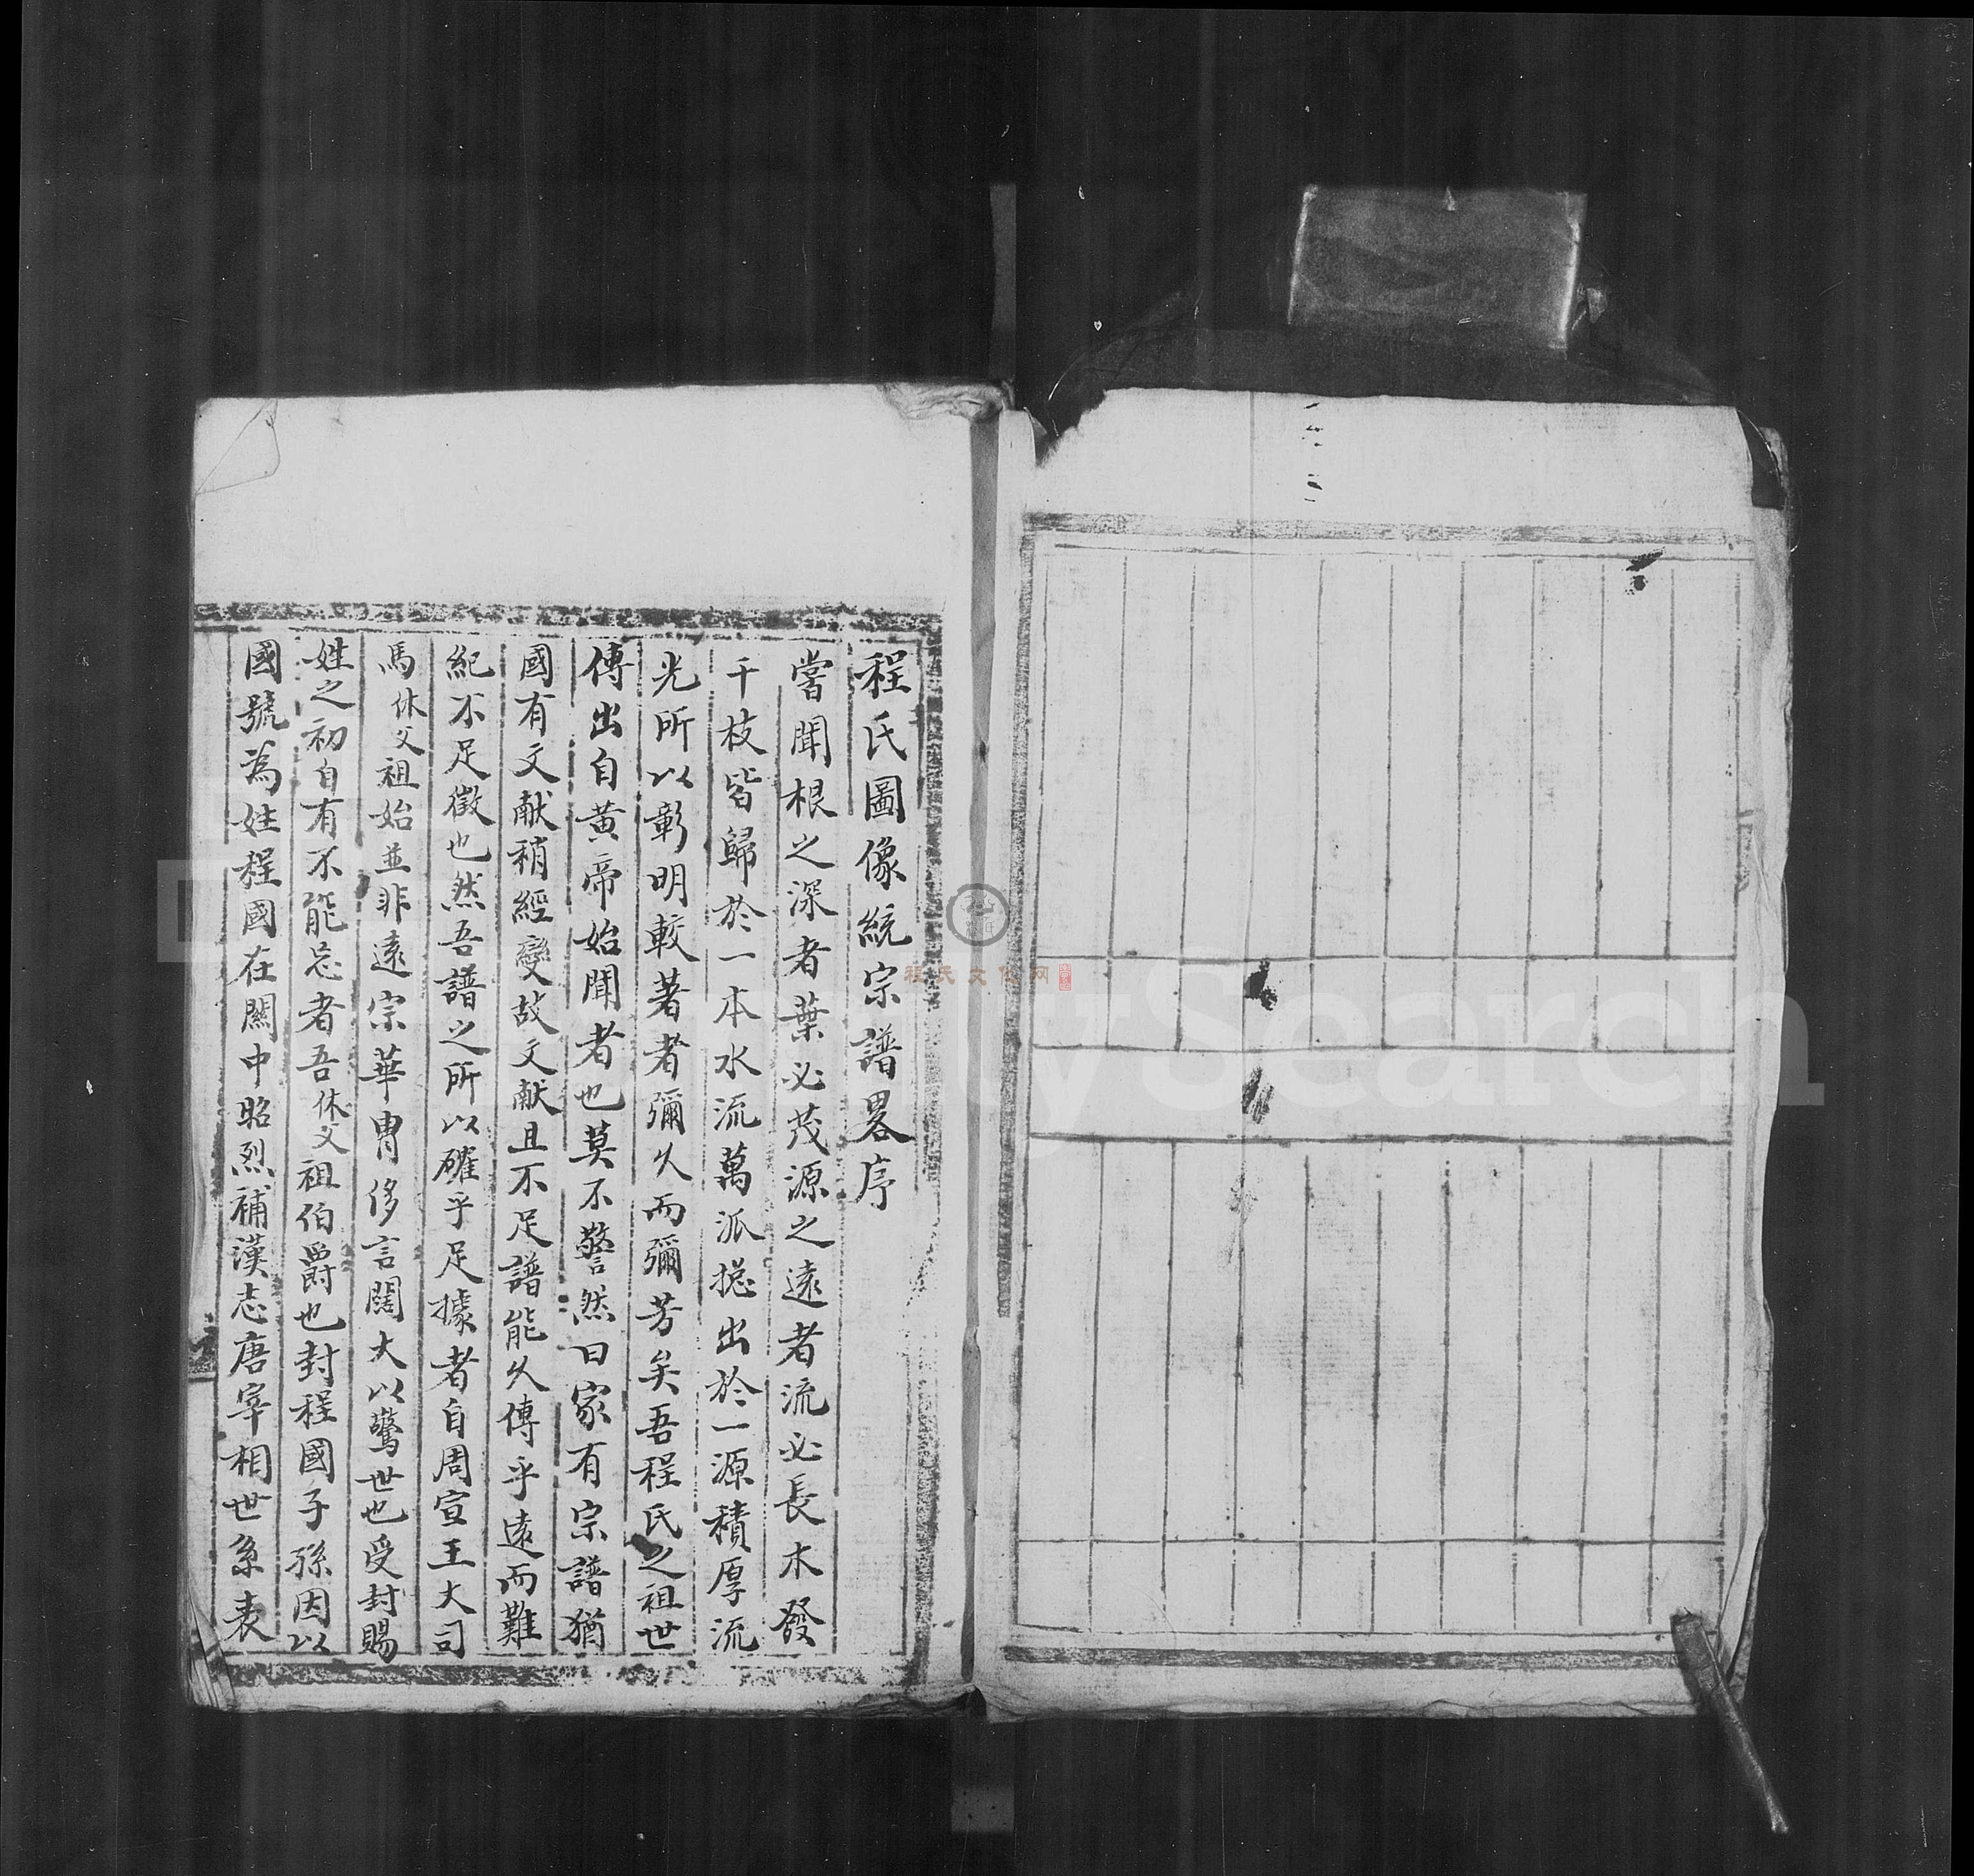 程氏圖像統宗譜畧序
嘗聞根之深者葉必茂源之遠者流必長木發
千枝皆歸於一本水流萬派揔出於一源積厚流
光所以彰明較著者彌久而彌芳矣吾程氏之祖世
傳出自黃帝始聞者也莫不警然曰家有宗譜猶
國有文献稍經變故文献且不足譜能久傳乎遠而難
紀不足徵也然吾譜之所以確乎足據者自周宣王大司
馬休父祖始並非遠宗華胄侈言闊大以驚世也受封賜
姓之初自有不能忘者吾休父祖伯爵也封程國子孫因以
國號為姓程國在關中昭烈補漢志唐宰相世系表
程氏文化网